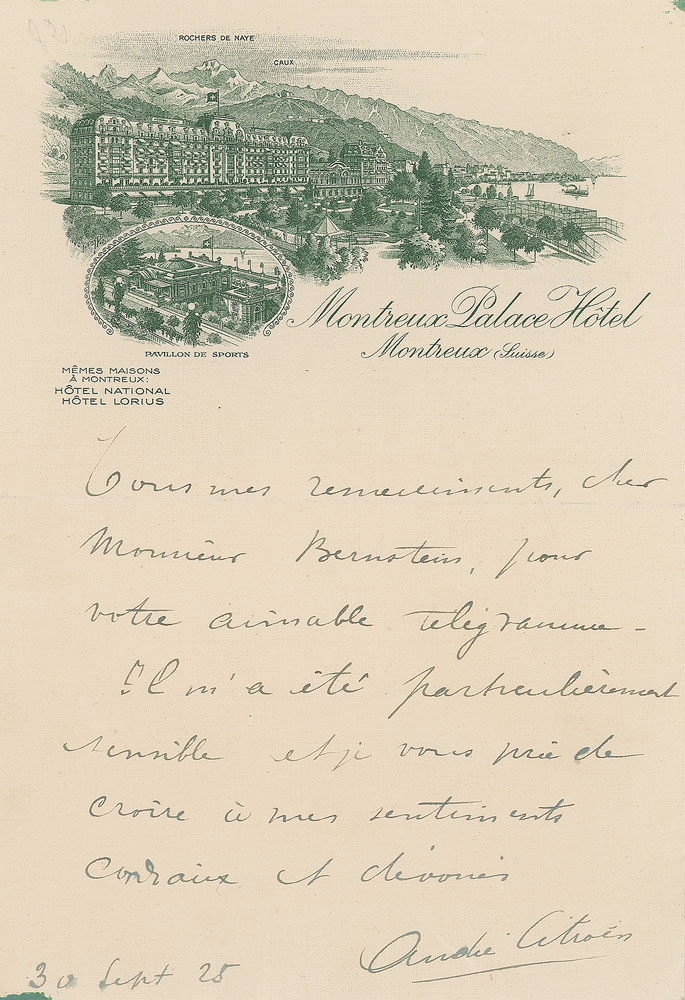 ROCHERS DE NAYE
CAUX
Montreux Palace Hôtel
Montreux (Suisse)
PAVILLON DE SPORTS
MÊMES MAISONS
À MONTREUX:
HÔTEL NATIONAL
HÔTEL LORIUS
Tous mes remerciements, cher
Monsieur Bernstein, pour
votre aimable télégramme -
Il m'a été particulièrement
sensible et je vous prie de
croire à mes sentiments
cordiaux et dévoués
André Citroën
30 Sept 25